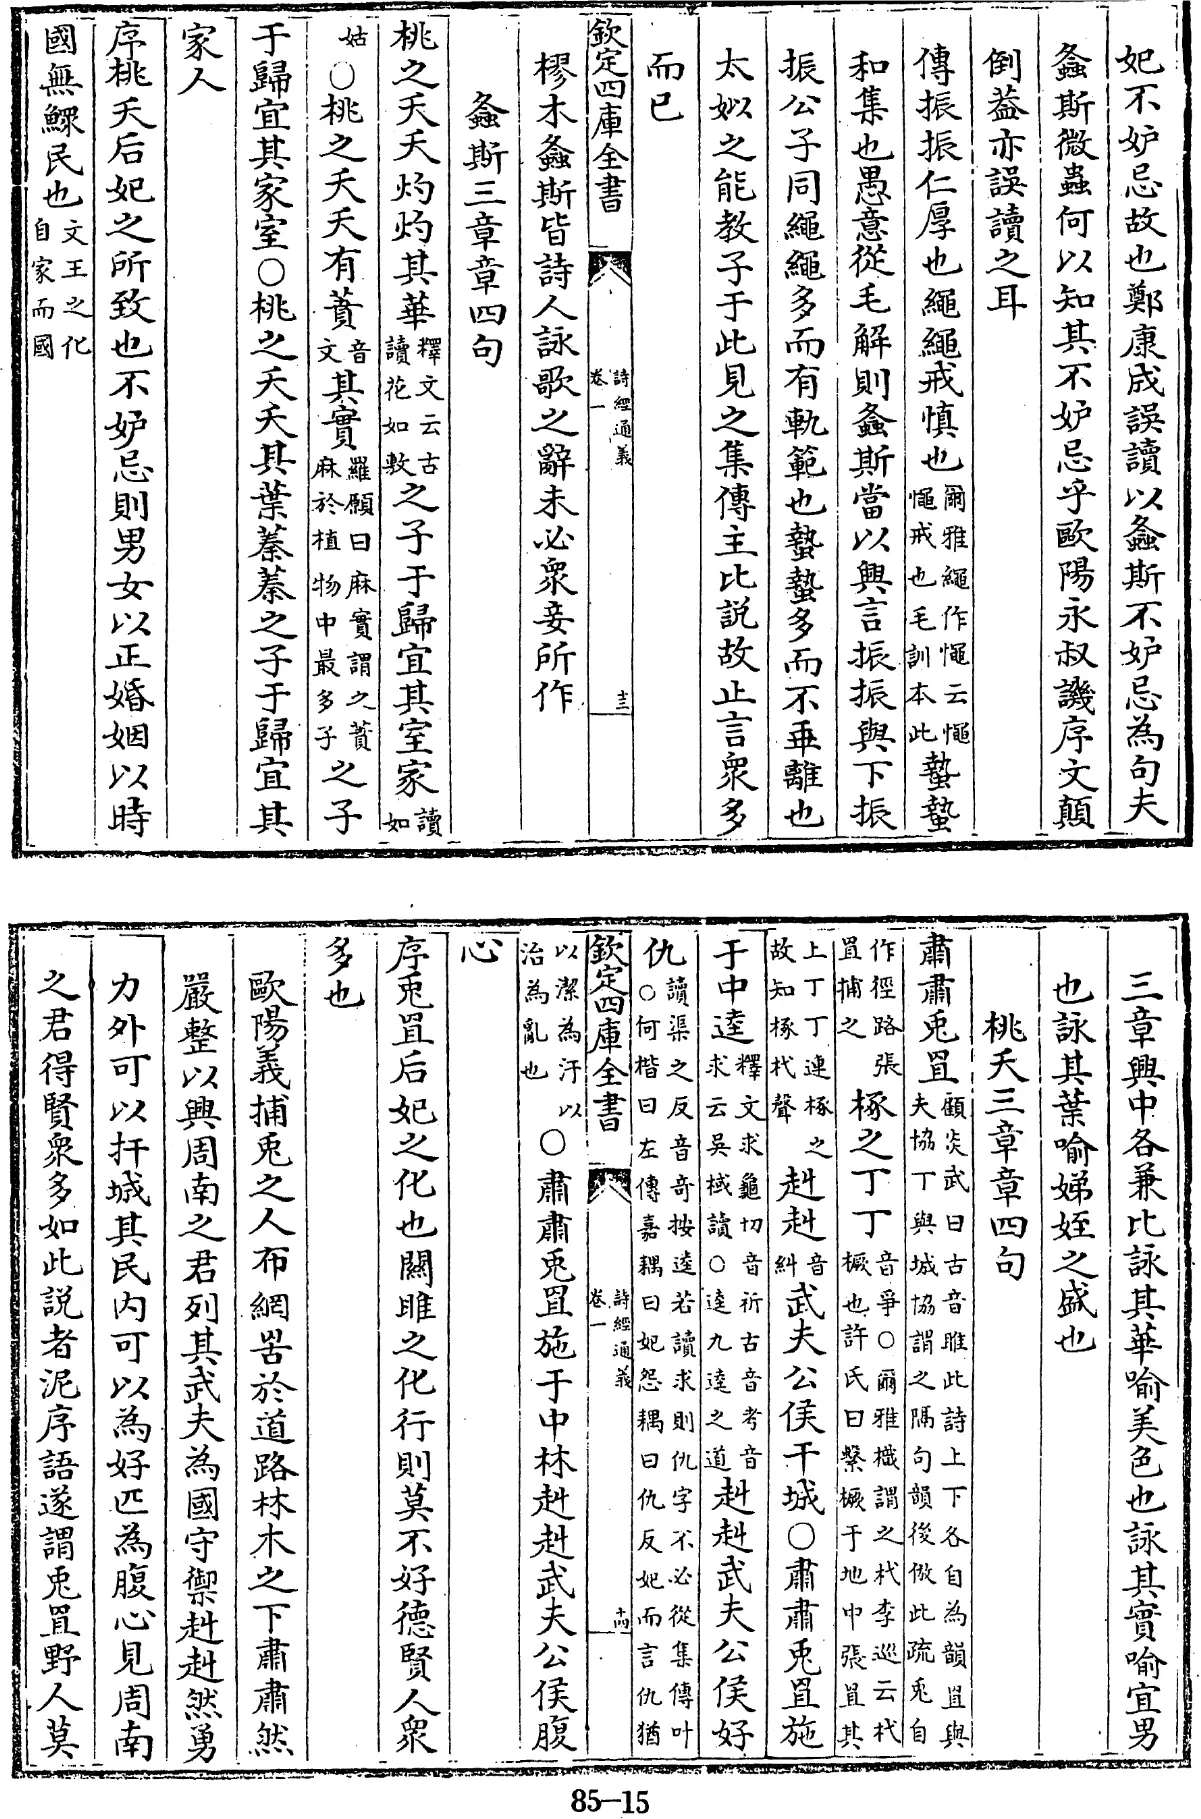 妃不妒忌故也鄭康成誤讀以螽斯不妒忌為句夫
螽斯微蟲何以知其不妒忌乎歐陽永叔譏序文顛
倒葢亦誤讀之耳
傳振振仁厚也繩繩戒慎也爾雅繩作憴云憴憴戒也毛訓本此蟄蟄
和集也愚意從毛解則螽斯當以興言振振與下振
振公子同繩繩多而有軌範也蟄蟄多而不乖離也
太姒之能教子于此見之集傳主比説故止言衆多
而已
欽定四庫全書
詩經通義
卷一
十三
樛木螽斯皆詩人詠歌之辭未必衆妾所作
螽斯三章章四句
桃之夭夭灼灼其華釋文云古讀花如敷之子于歸宜其室家讀如
姑○桃之夭夭有蕡音文其實羅願曰麻實謂之蕡麻於植物中最多子之子
于歸宜其家室○桃之夭夭其葉蓁蓁之子于歸宜其
家人
序桃夭后妃之所致也不妒忌則男女以正婚姻以時
國無鰥民也文王之化自家而國
三章興中各兼比詠其華喻美色也詠其實喻宜男
也詠其葉喻娣姪之盛也
桃夭三章章四句
肅肅兎罝顧炎武曰古音雎此詩上下各自為韻罝與夫協丁與城協謂之隔句韻後倣此疏兎自
作徑路張罝捕之椓之丁丁音爭○爾雅樴謂之杙李巡云杙橛也許氏曰繫橛于地中張罝其
上丁丁連椓之故知椓杙聲赳赳音糾武夫公侯干城○肅肅兎罝施
于中逵釋文求龜切音祈古音考音求云吳棫讀○逵九逵之道赳赳武夫公侯好
仇讀渠之反音奇按逵若讀求則仇字不必從集傳叶○何楷曰左傳嘉耦曰妃怨耦曰仇反妃而言仇猶
欽定四庫全書
詩經通義
卷一
十四
以潔為汙以治為亂也○肅肅兎罝施于中林赳赳武夫公侯腹
心
序兎罝后妃之化也關雎之化行則莫不好德賢人衆
多也
歐陽義捕兎之人布網罟於道路林木之下肅肅然
嚴整以興周南之君列其武夫為國守禦赳赳然勇
力外可以扞城其民内可以為好匹為腹心見周南
之君得賢衆多如此説者泥序語遂謂兎罝野人莫
85—15